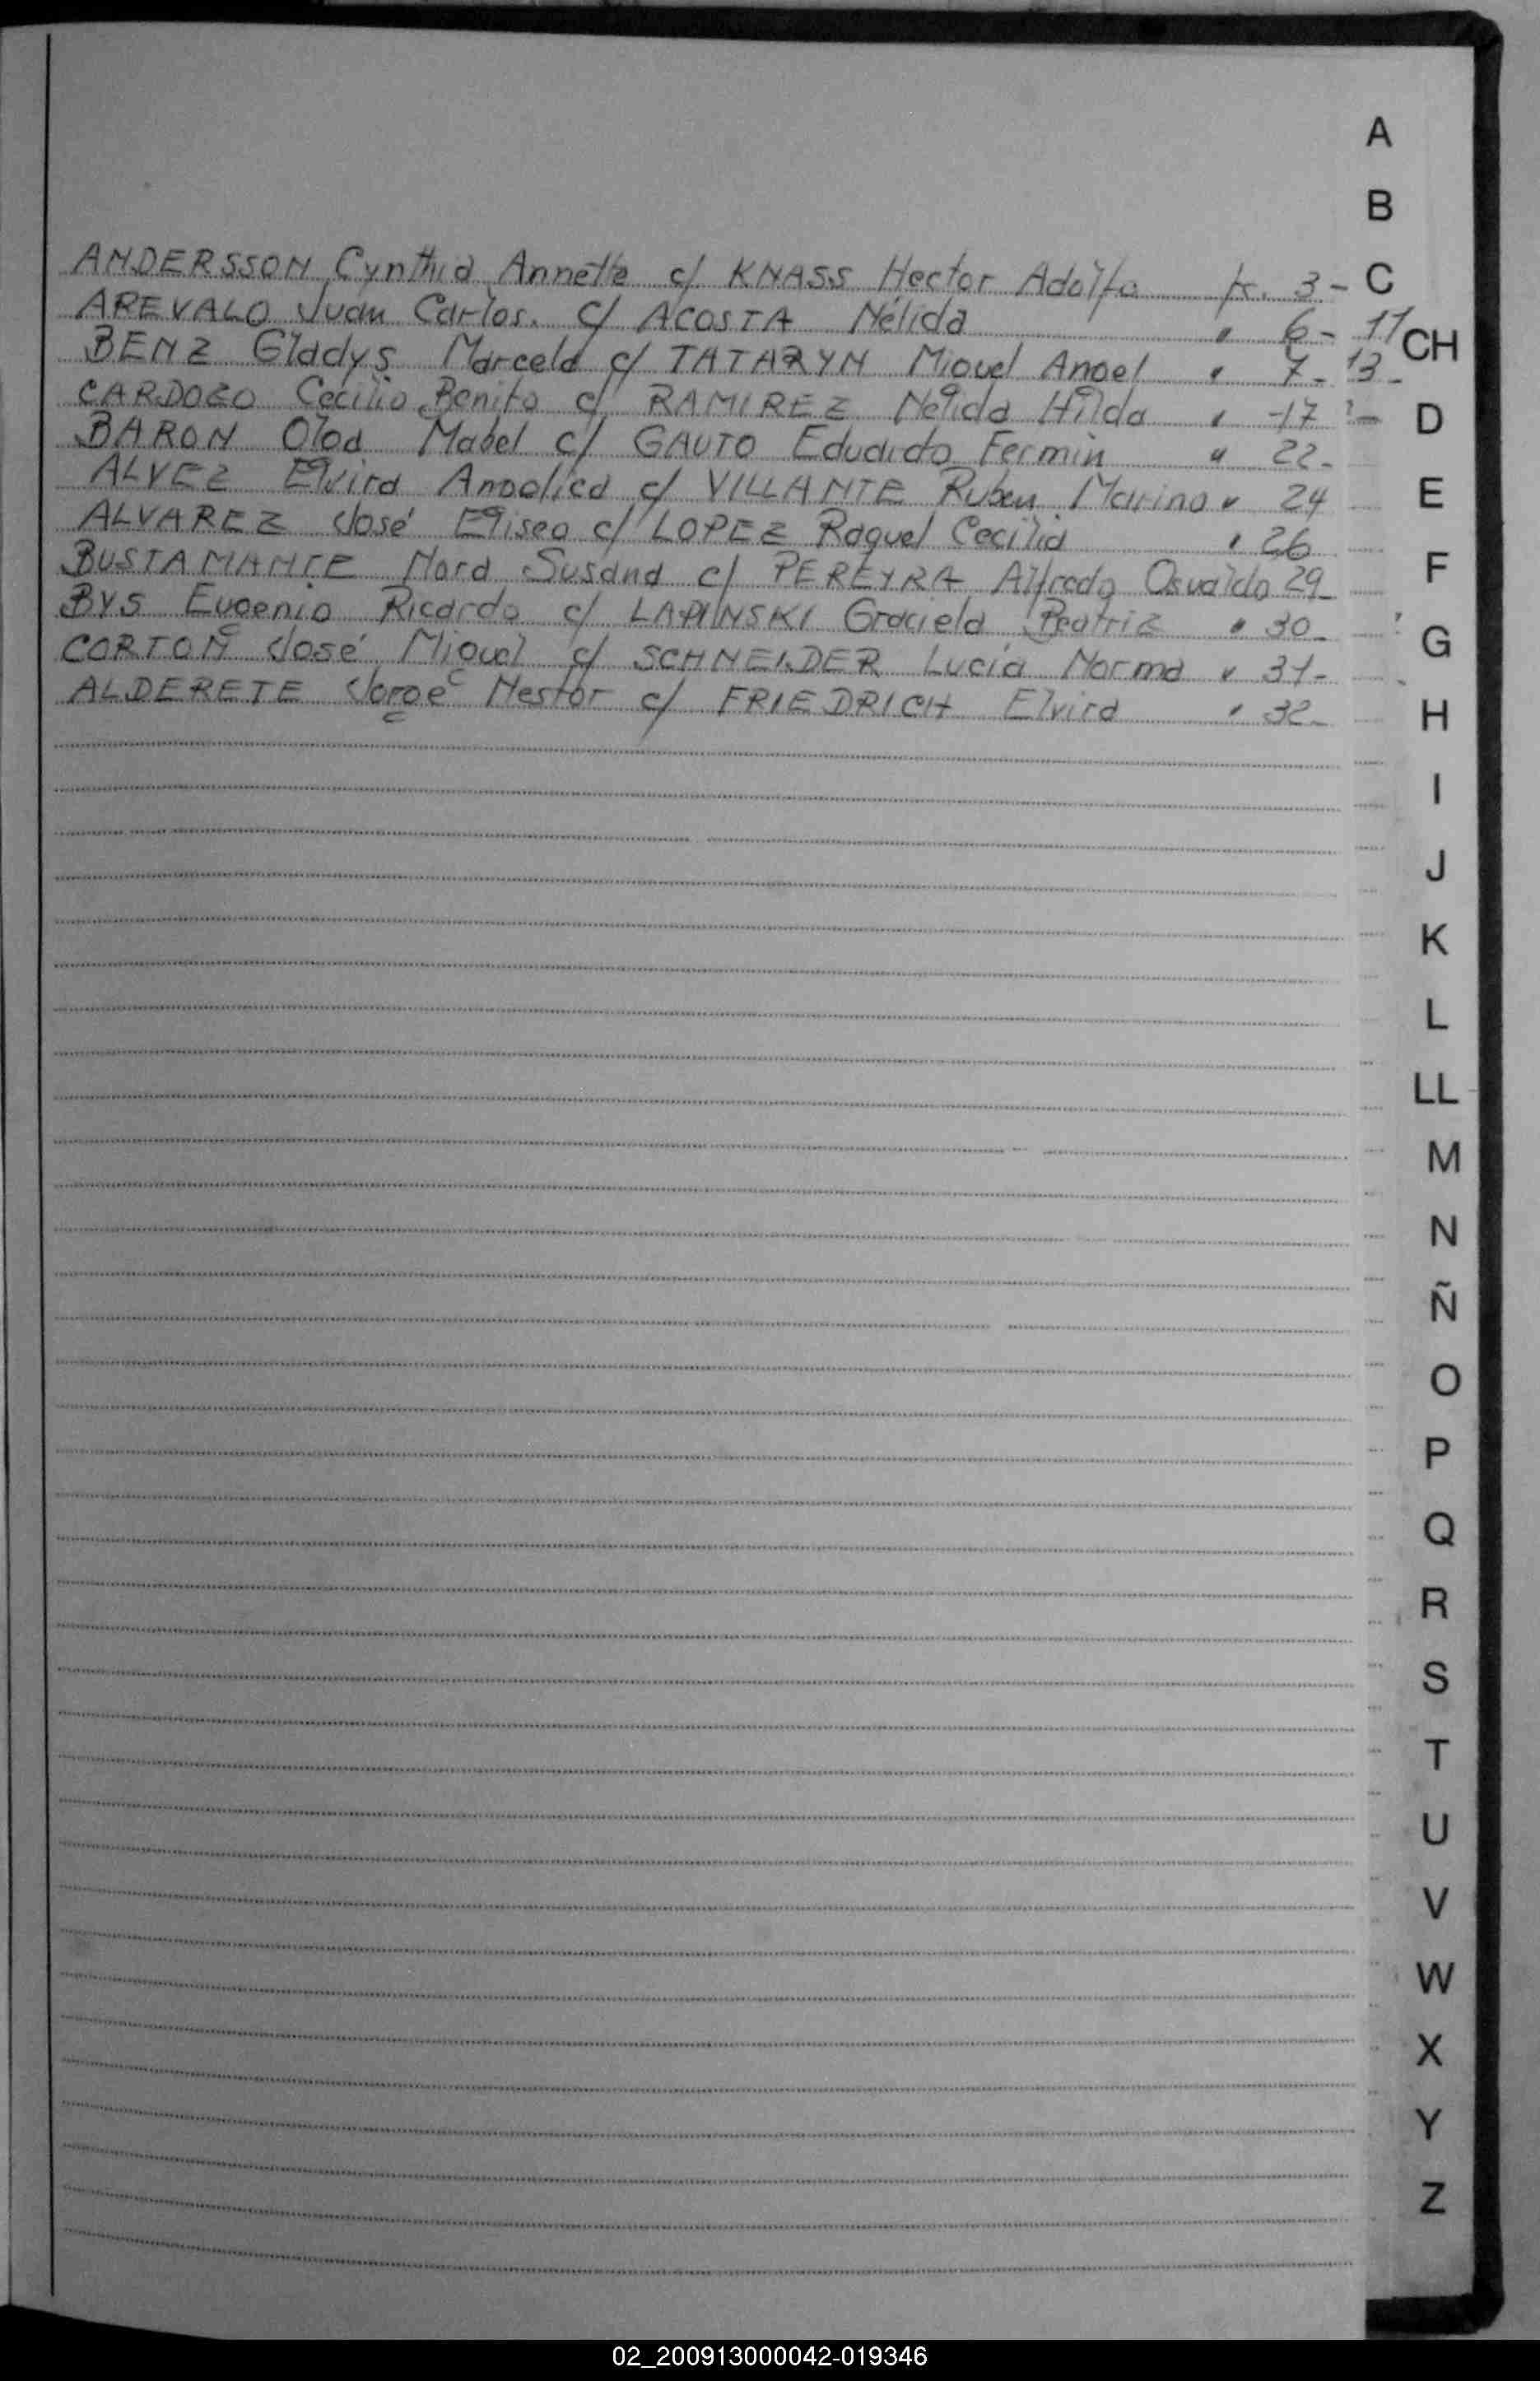 ANDERSSON Cynthia Annette c/ KNASS Hector Adolfo f. 3-
AREVALO Juan Carlos. c/ ACOSTA Nélida " 6- 11
BENZ Gladys Marcela c/ TATARYN Miguel Angel " 7- 13-
CARDOZO Cecilio Benito c/ RAMIREZ Nélida Hilda " 17
BARON Olga Mabel c/ GAUTO Eduardo Fermin " 22-
ALVEZ Elvira Angelica c/ VILLANTE Ruben Marino " 24
ALVAREZ José Eliseo c/ LOPEZ Raquel Cecilia " 26
BUSTAMANTE Nora Susana c/ PEREYRA Alfredo Osvaldo 29-
BYS Eugenio Ricardo c/ LAPINSKI Graciela Beatriz " 30-
CORTON José Miguel c/ SCHNEIDER Lucía Norma " 31-
ALDERETE Jorge Nestor c/ FRIEDRICH Elvira " 32-
A
B
C
CH
D
E
F
G
H
I
J
K
L
LL
M
N
Ñ
O
P
Q
R
S
T
U
V
W
X
Y
Z
02_200913000042-019346